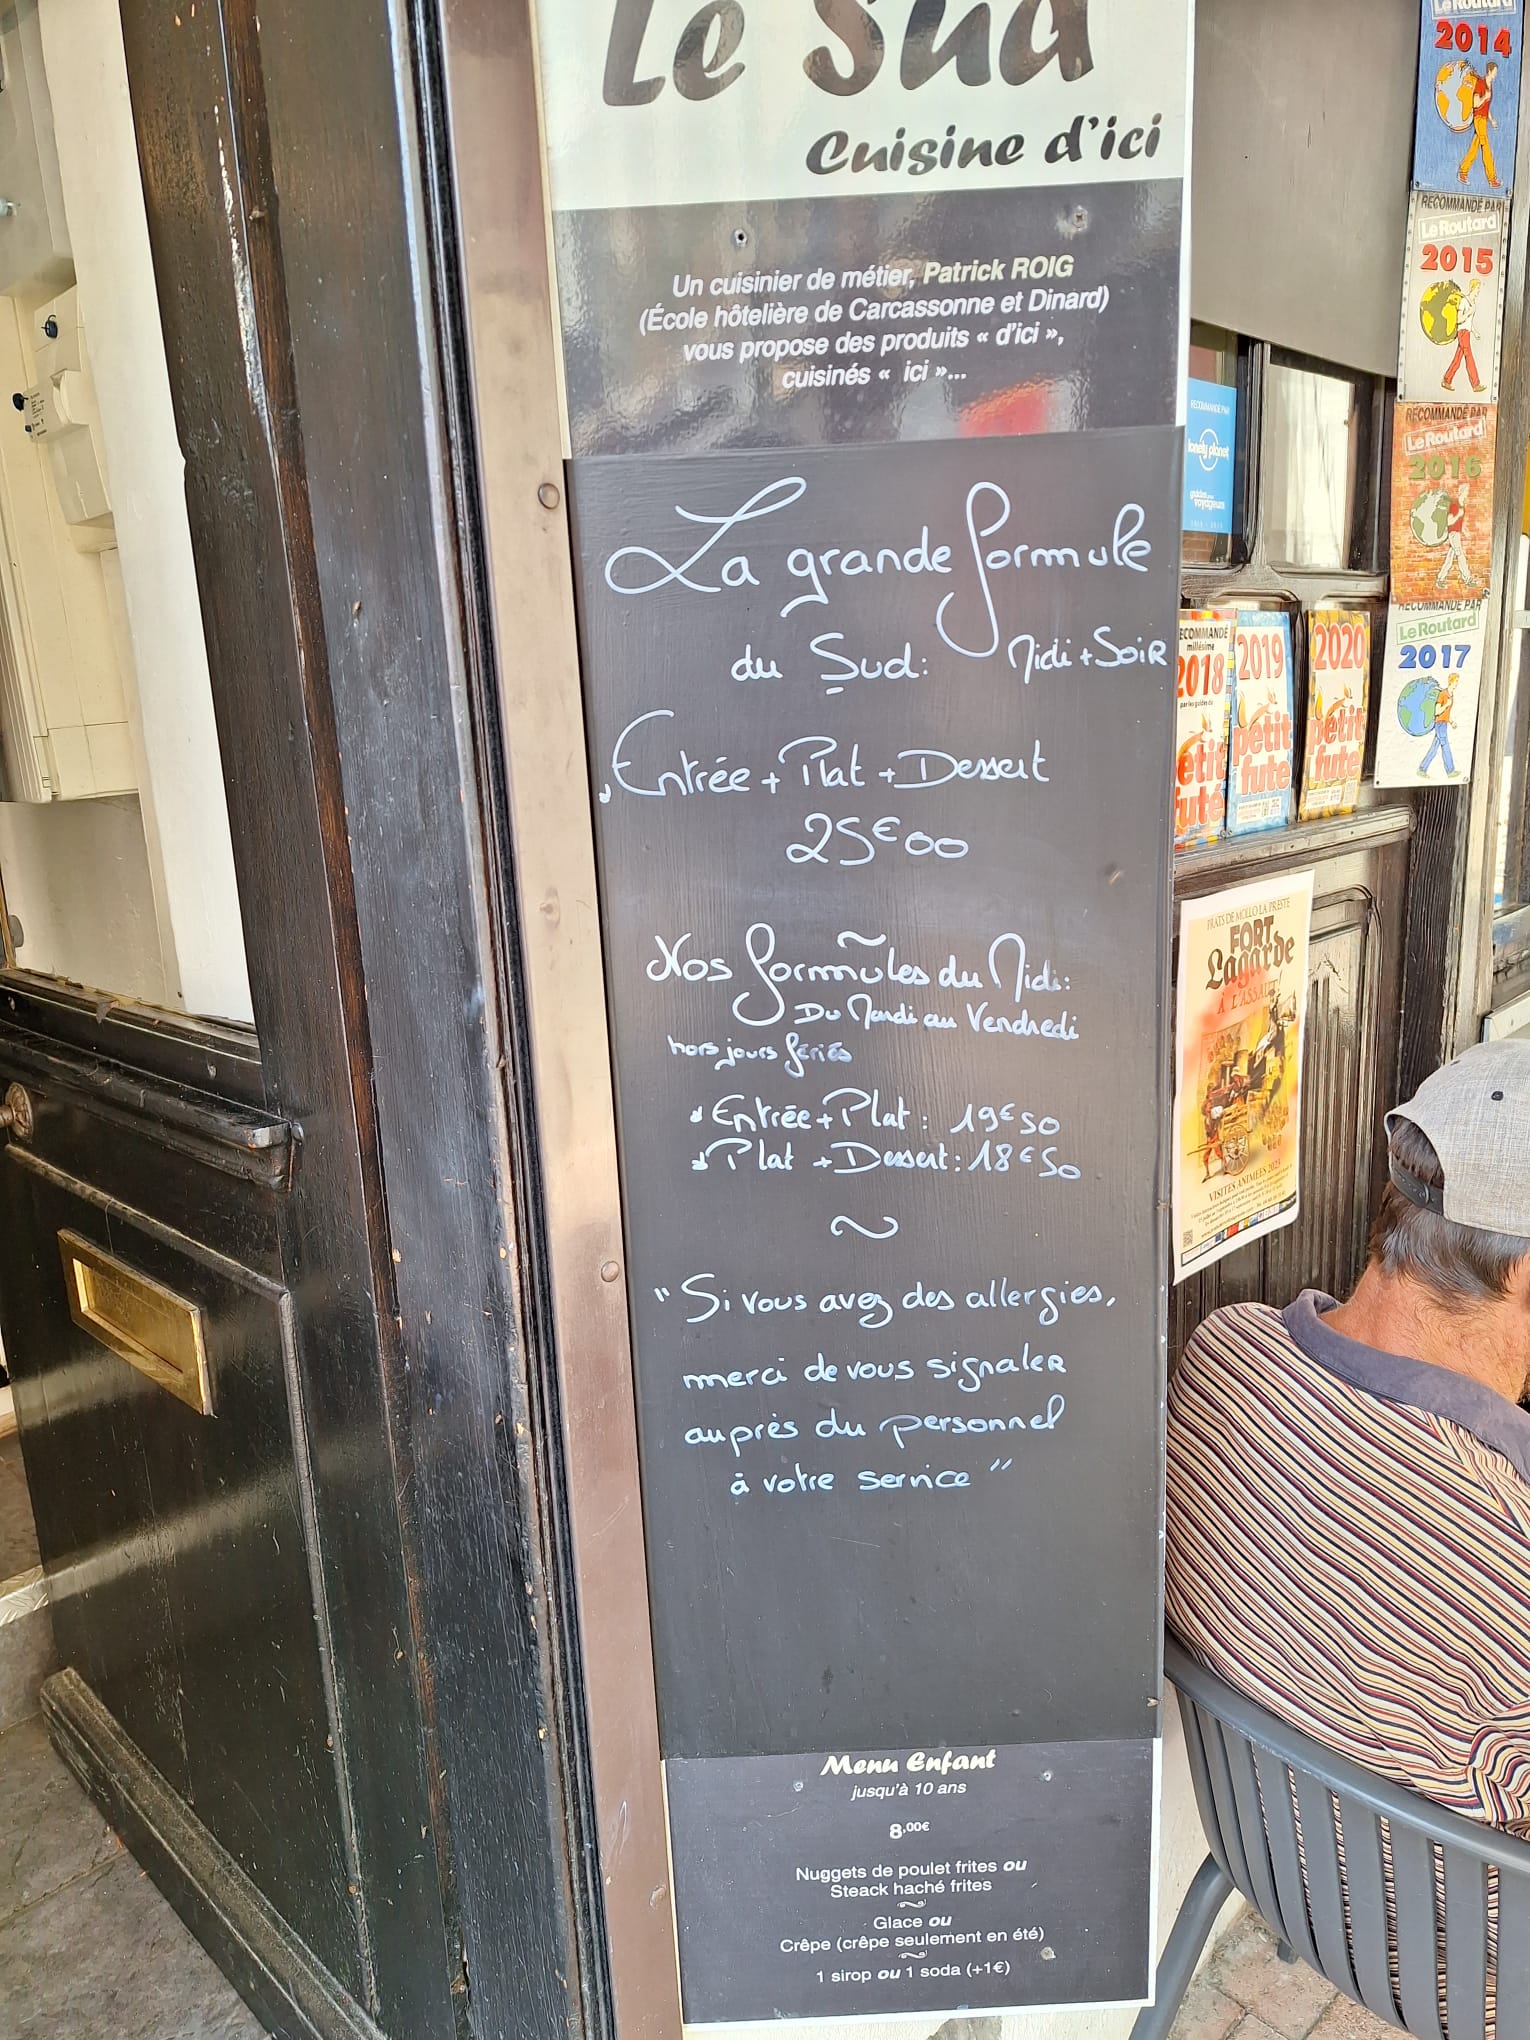 Le Sud
Cuisine d'ici
Un cuisinier de métier, Patrick ROIG
(École hôtelière de Carcassonne et Dinard)
vous propose des produits « d'ici »,
cuisinés « ici »...
La grande formule
du Sud: Midi + Soir
Entrée + Plat + Dessert
25€00
Nos formules du Midi:
Du Mardi au Vendredi
hors jours fériés
Entrée + Plat : 19€50
Plat + Dessert : 18€50
~
"Si vous avez des allergies,
merci de vous signaler
auprès du personnel
à votre service"
Menu Enfant
jusqu'à 10 ans
8,00€
Nuggets de poulet frites ou
Steack haché frites
Glace ou
Crêpe (crêpe seulement en été)
1 sirop ou 1 soda (+1€)
Le Routard
2014
RECOMMANDÉ PAR
Le Routard
2015
RECOMMANDÉ PAR
Le Routard
2016
RECOMMANDÉ PAR
Le Routard
2017
RECOMMANDÉ PAR
lonely planet
RECOMMANDÉ
millésime
2018
petit
futé
2019
petit
futé
2020
petit
futé
PRATS DE MOLLO LA PRESTE
FORT
Lagarde
À L'ASSAUT
VISITES ANIMÉES 2023